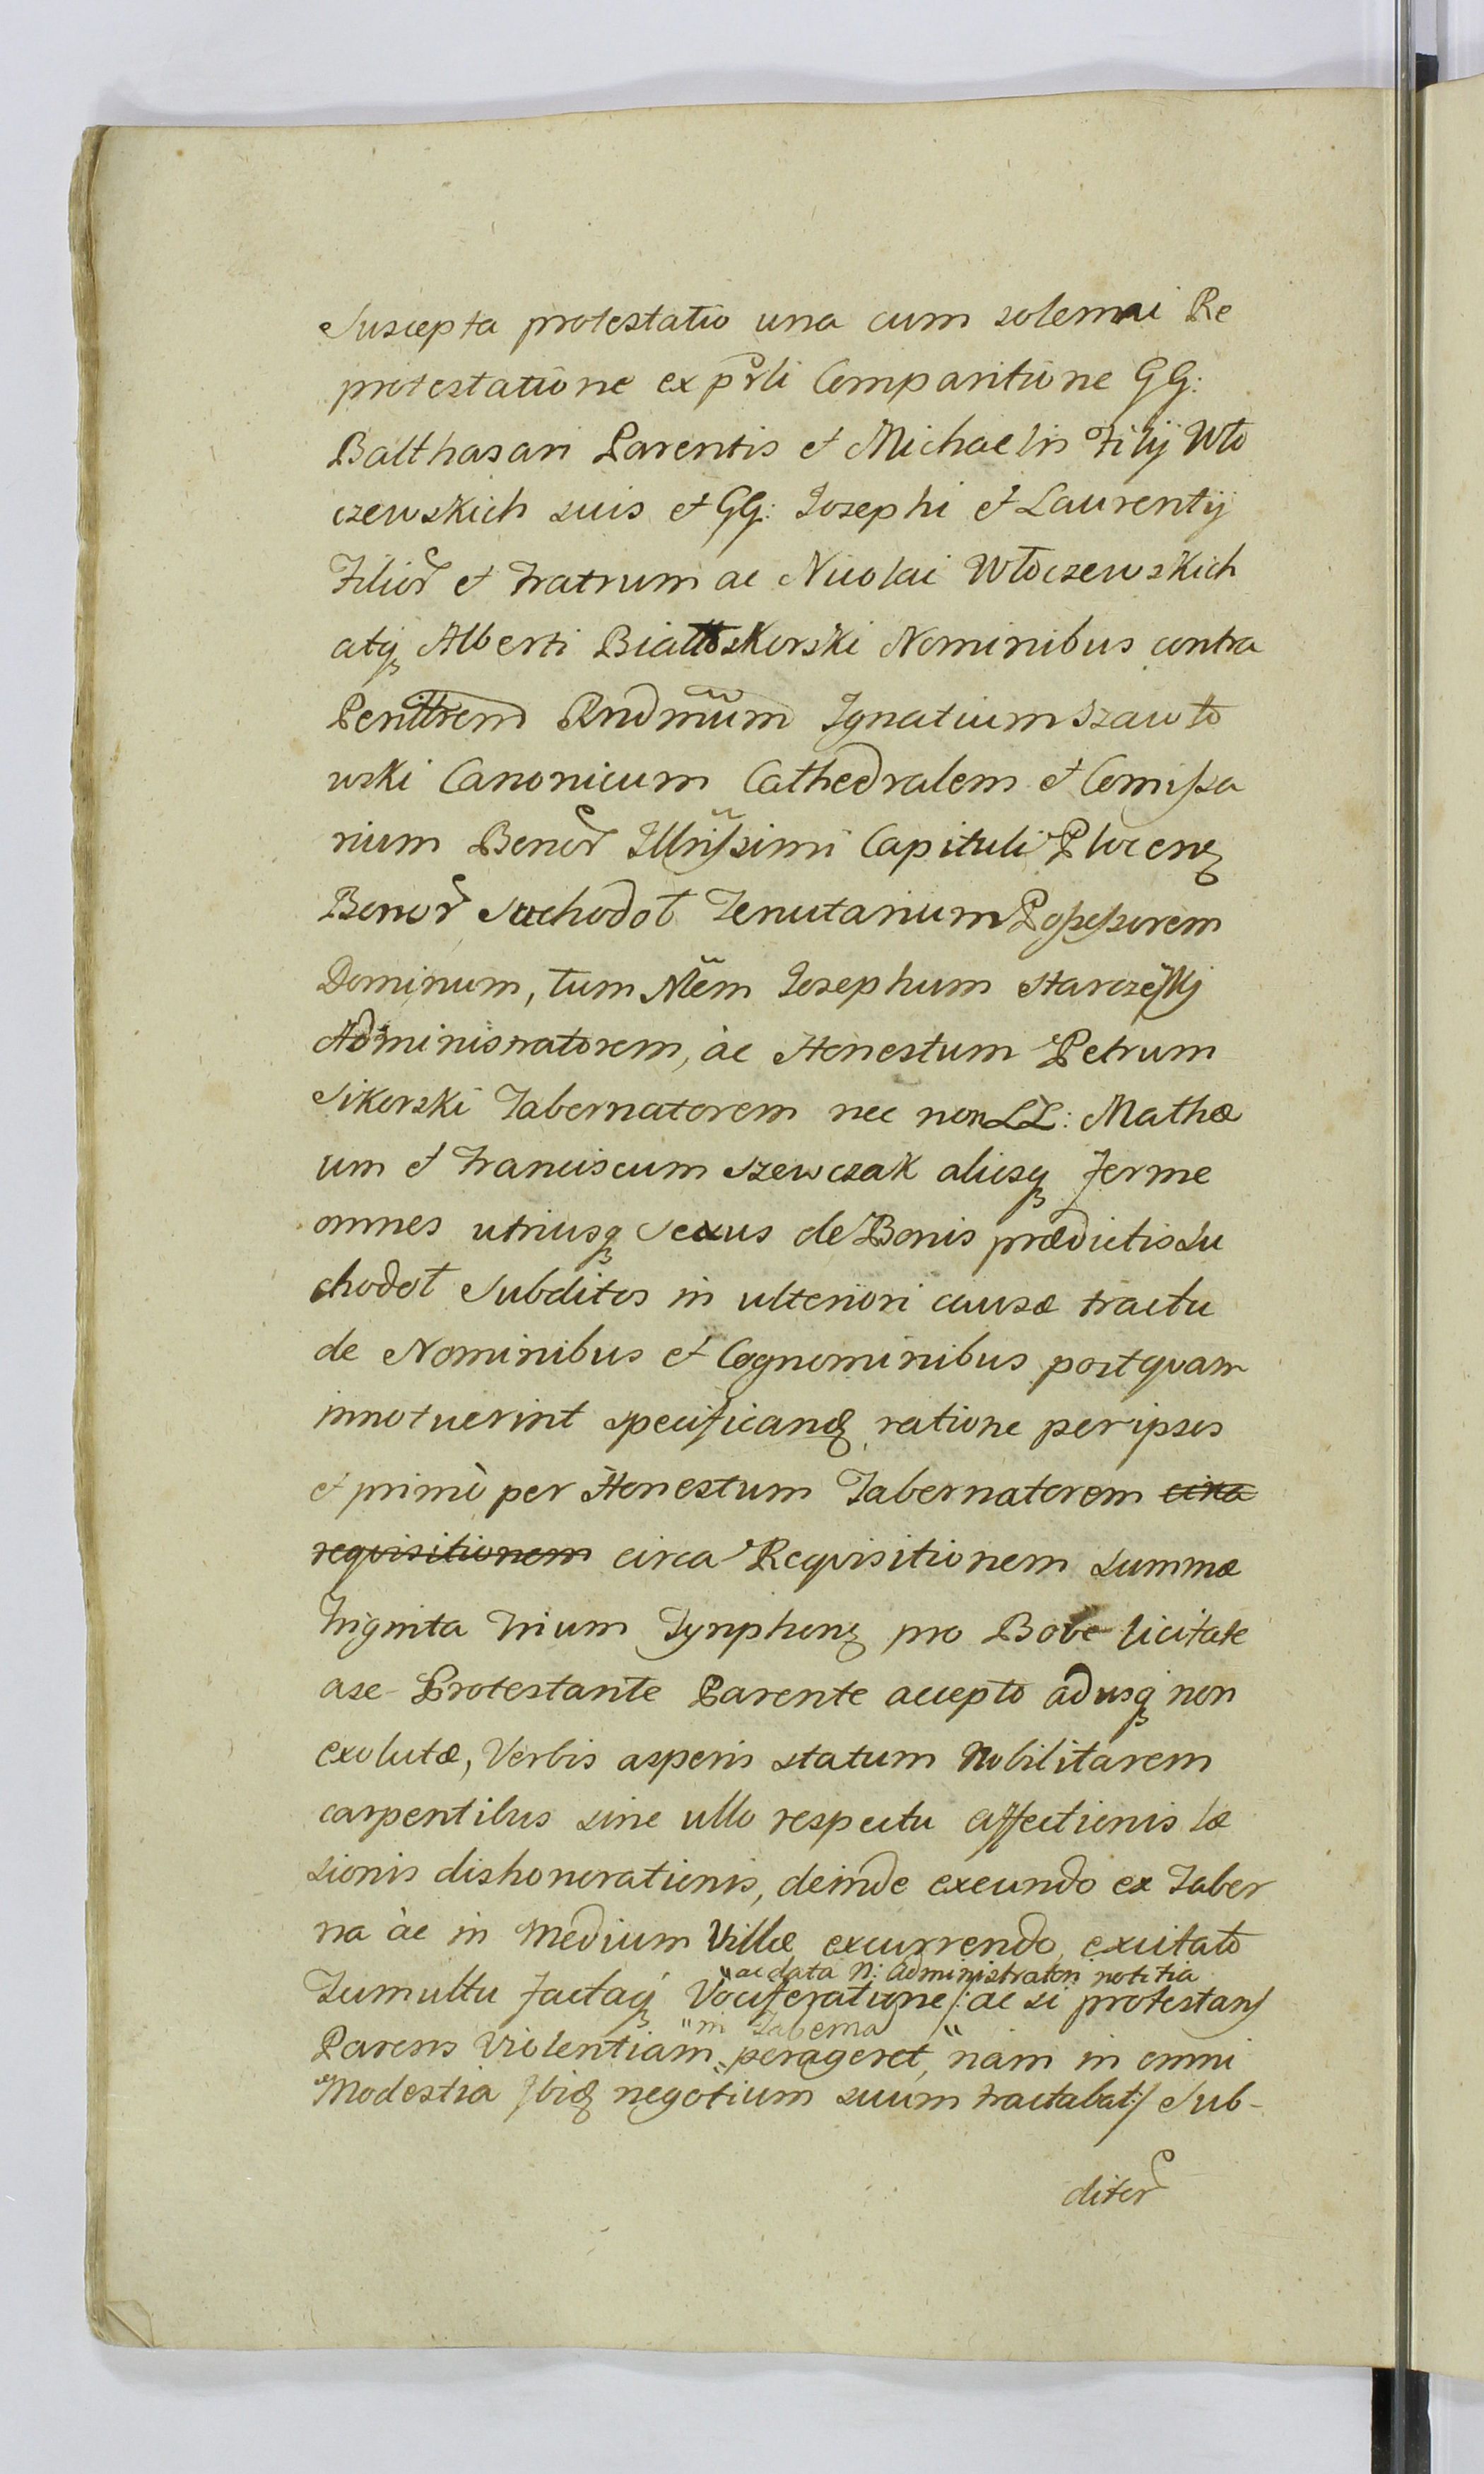 Suscepta protestatio una cum solemni Re
protestatione ex p̄rli Comparitione GG:
Balthasari Parentis et Michaelis Filij Wło
czewskich suis et GG: Josephi et Laurentij
Filior̃ et Fratrum ac Nicolai Włoczewskich
atqꝫ Alberti Białłoskorski Nominibus contra
Perilltrem Rndmūm Ignatium Szawło
wski Canonicum Cathedralem et Comissa
rium Bonor̃ Illr̃issimi Capituli Plocenꝫ
Bonor̃ Suchodoł Tenutarium Possessorem
Dominum, tum Nlēm Josephum Starczēski
Administratorem, ac Honestum Petrum
Sikorski Tabernatorem nec non LL: Mathæ
um et Franciscum Szewczak aliosqꝫ ferme
omnes utriusqꝫ Sexus de Bonis prædictis Su
chodoł Subditos in ulteriori causæ tractu
de Nominibus et Cognominibus postquam
innotuerint specificandꝫ ratione per ipsos
et primò per Honestum Tabernatorem circa
requisitionem circa Requisitionem Summæ
Triginta Trium Tynphonꝫ pro Bove licitate
a se Protestante Parente accepto adusqꝫ non
exolutæ, Verbis asperis statum Nobilitarem
carpentibus sine ullo respectu affectionis læ
sionis dishonorationis, deinde exeundo ex Taber
na àc in Medium Villæ excurrendo, excitato
"ac data N: Administratori notitia
Tumultu factaqꝫ Vociferatione /: ac si protestans
"in Taberna
Parens Violentiam perageret, nam in omni
Modestia Ibidꝫ negotium suum tractabat :/ Sub-
ditor̃